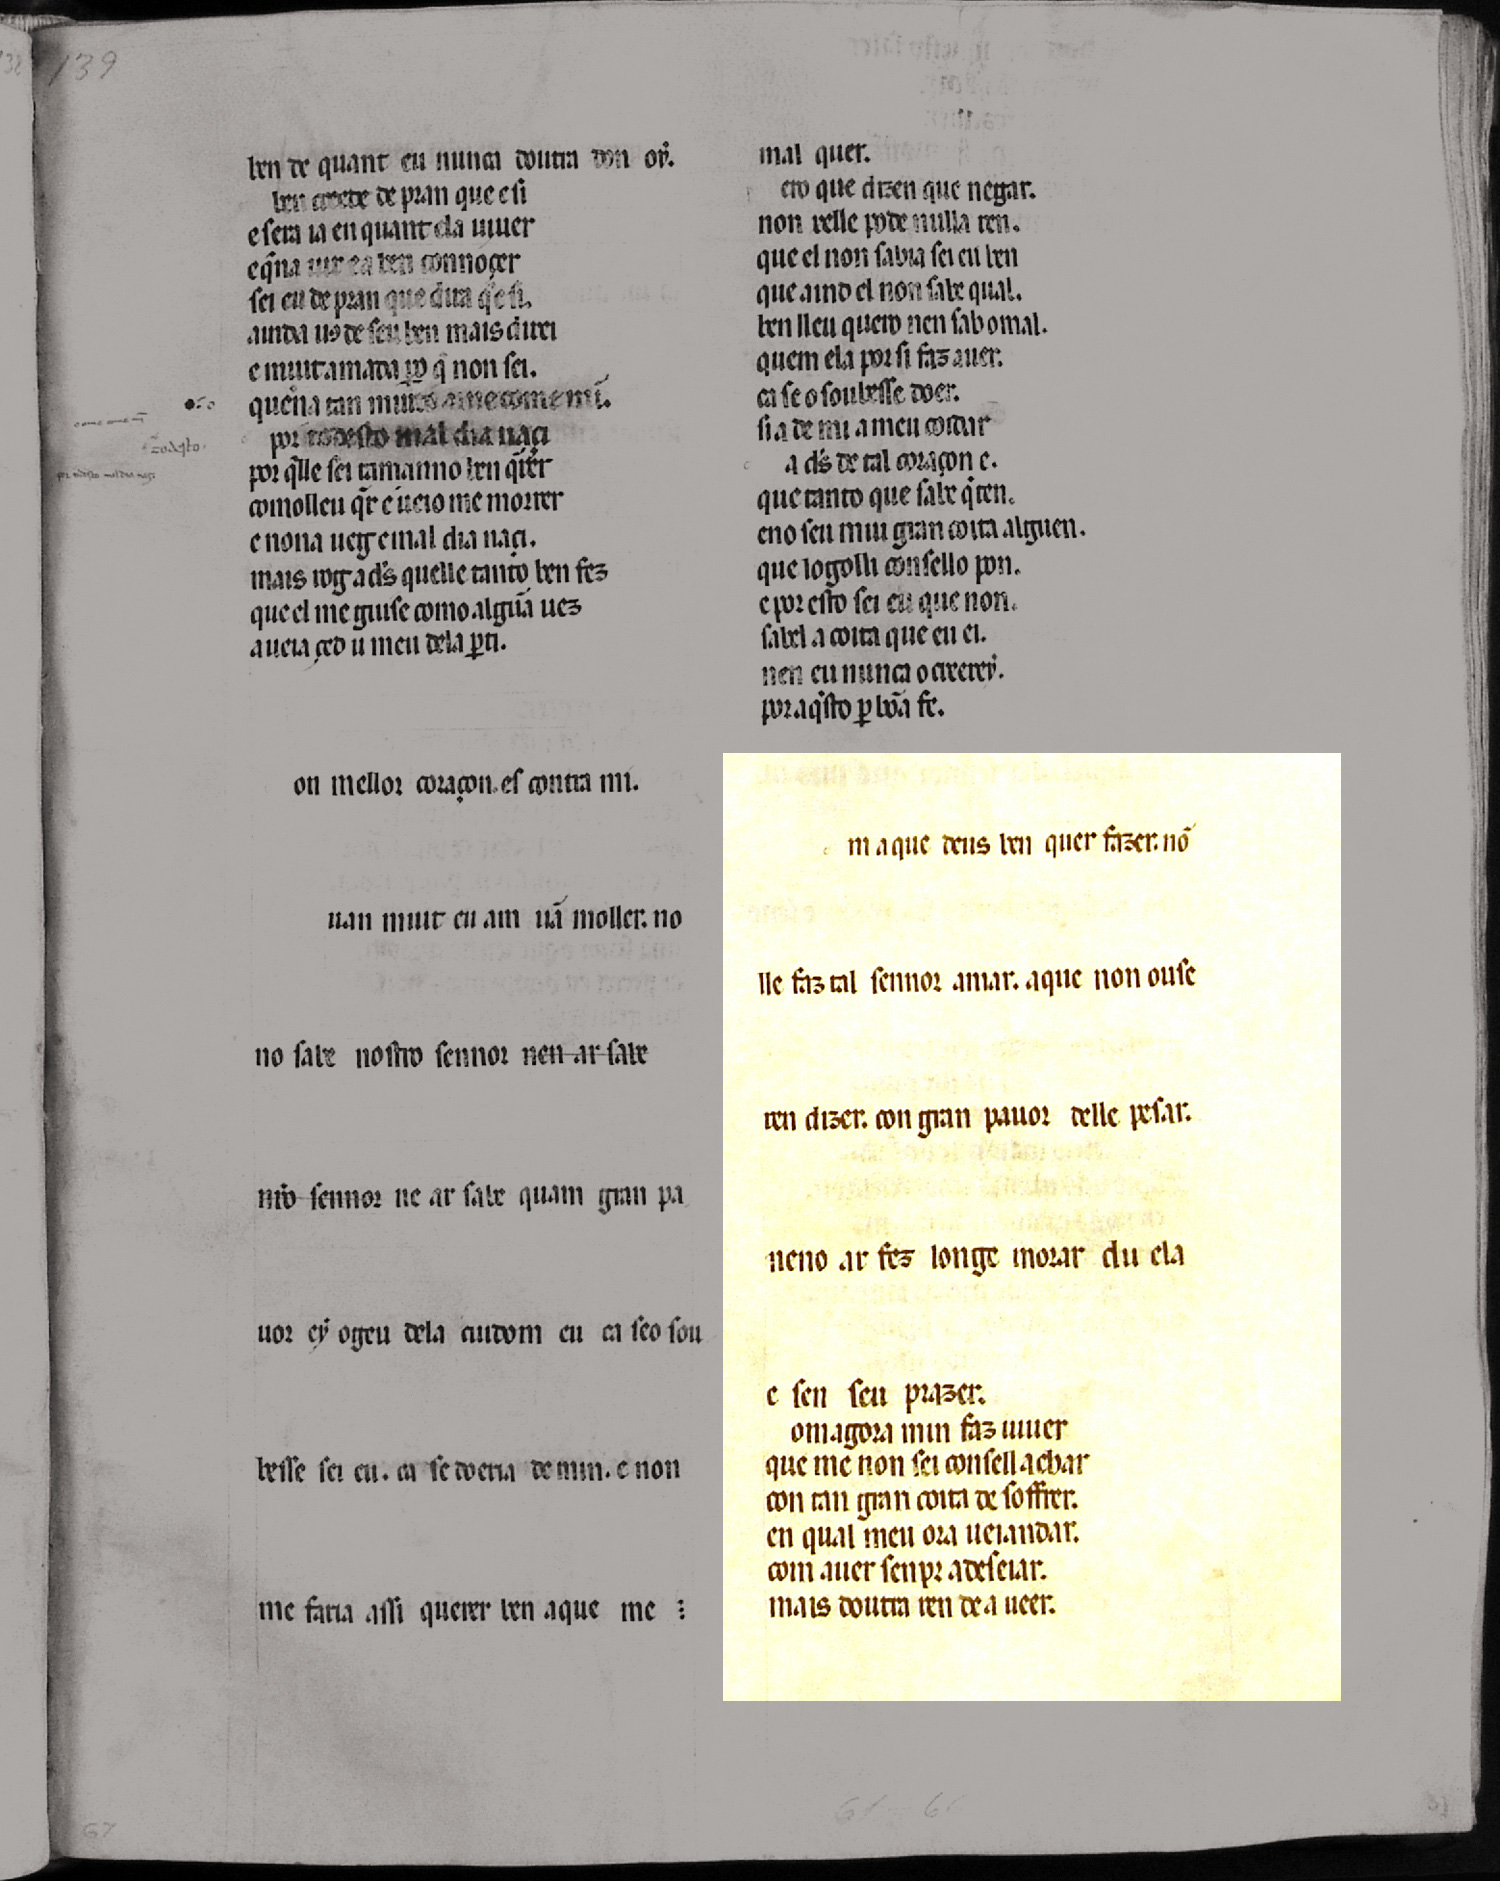 139
ben de quant eu nunca doutra don oý.
ben creede de pran que e si
e sera ia en quant ela uiuer
e q̄na uir e a ben connoçer
sei eu de pran que dira q̇ e si.
ainda uꝯ de seu ben mais direi
e muit amada ꝑo q̄ non sei.
quena tan muito ame come mĩ.
por todesto mal dia naçi
por q̇lle sei tamanno ben q̇rer
comolleu q̇r e ueio me morrer
e nona ueg e mal dia naçi.
mais rog a dŝ quelle tanto ben fez
que el me guise como algũa uez
a ueia çed u meu dela ꝑti.
on mellor coraçon. es contra mi.
uan muit eu am ũa moller. no
no sabe nostro sennor nen ar sabe
nr̃o sennor ne ar sabe quam gran pa
uor eý ogeu dela cuidom eu ca seo sou
besse sei eu. ca se doeria de min. e non
me faria assi querer ben aque me
mal quer.
ero que dizen que negar.
non xelle pode nulla ren.
que el non sabia sei eu ben
que aind el non sabe qual.
ben lleu quero nen sab o mal.
quem ela por si faz auer.
ca se o soubesse doer.
si a de mi a meu coidar
a dŝ de tal coraçon e.
que tanto que sabe q̇ ten.
eno seu mui gran coita alguen.
que logolli consello pon.
e por esto sei eu que non.
sabel a coita que eu ei.
nen eu nunca o creerey.
por aq̇sto ꝑ bõa fe.
m aque deus ben quer fazer. nõ
lle faz tal sennor amar. aque non ouse
ren dizer. con gran pauor delle pesar.
neno ar fez longe morar du ela
e sen seu prazer.
omagora min faz uiuer
que me non sei consell achar
con tan gran coita de soffrer.
en qual meu ora uei andar.
com auer senpr a deseiar.
mais doutra ren de a ueer.
67